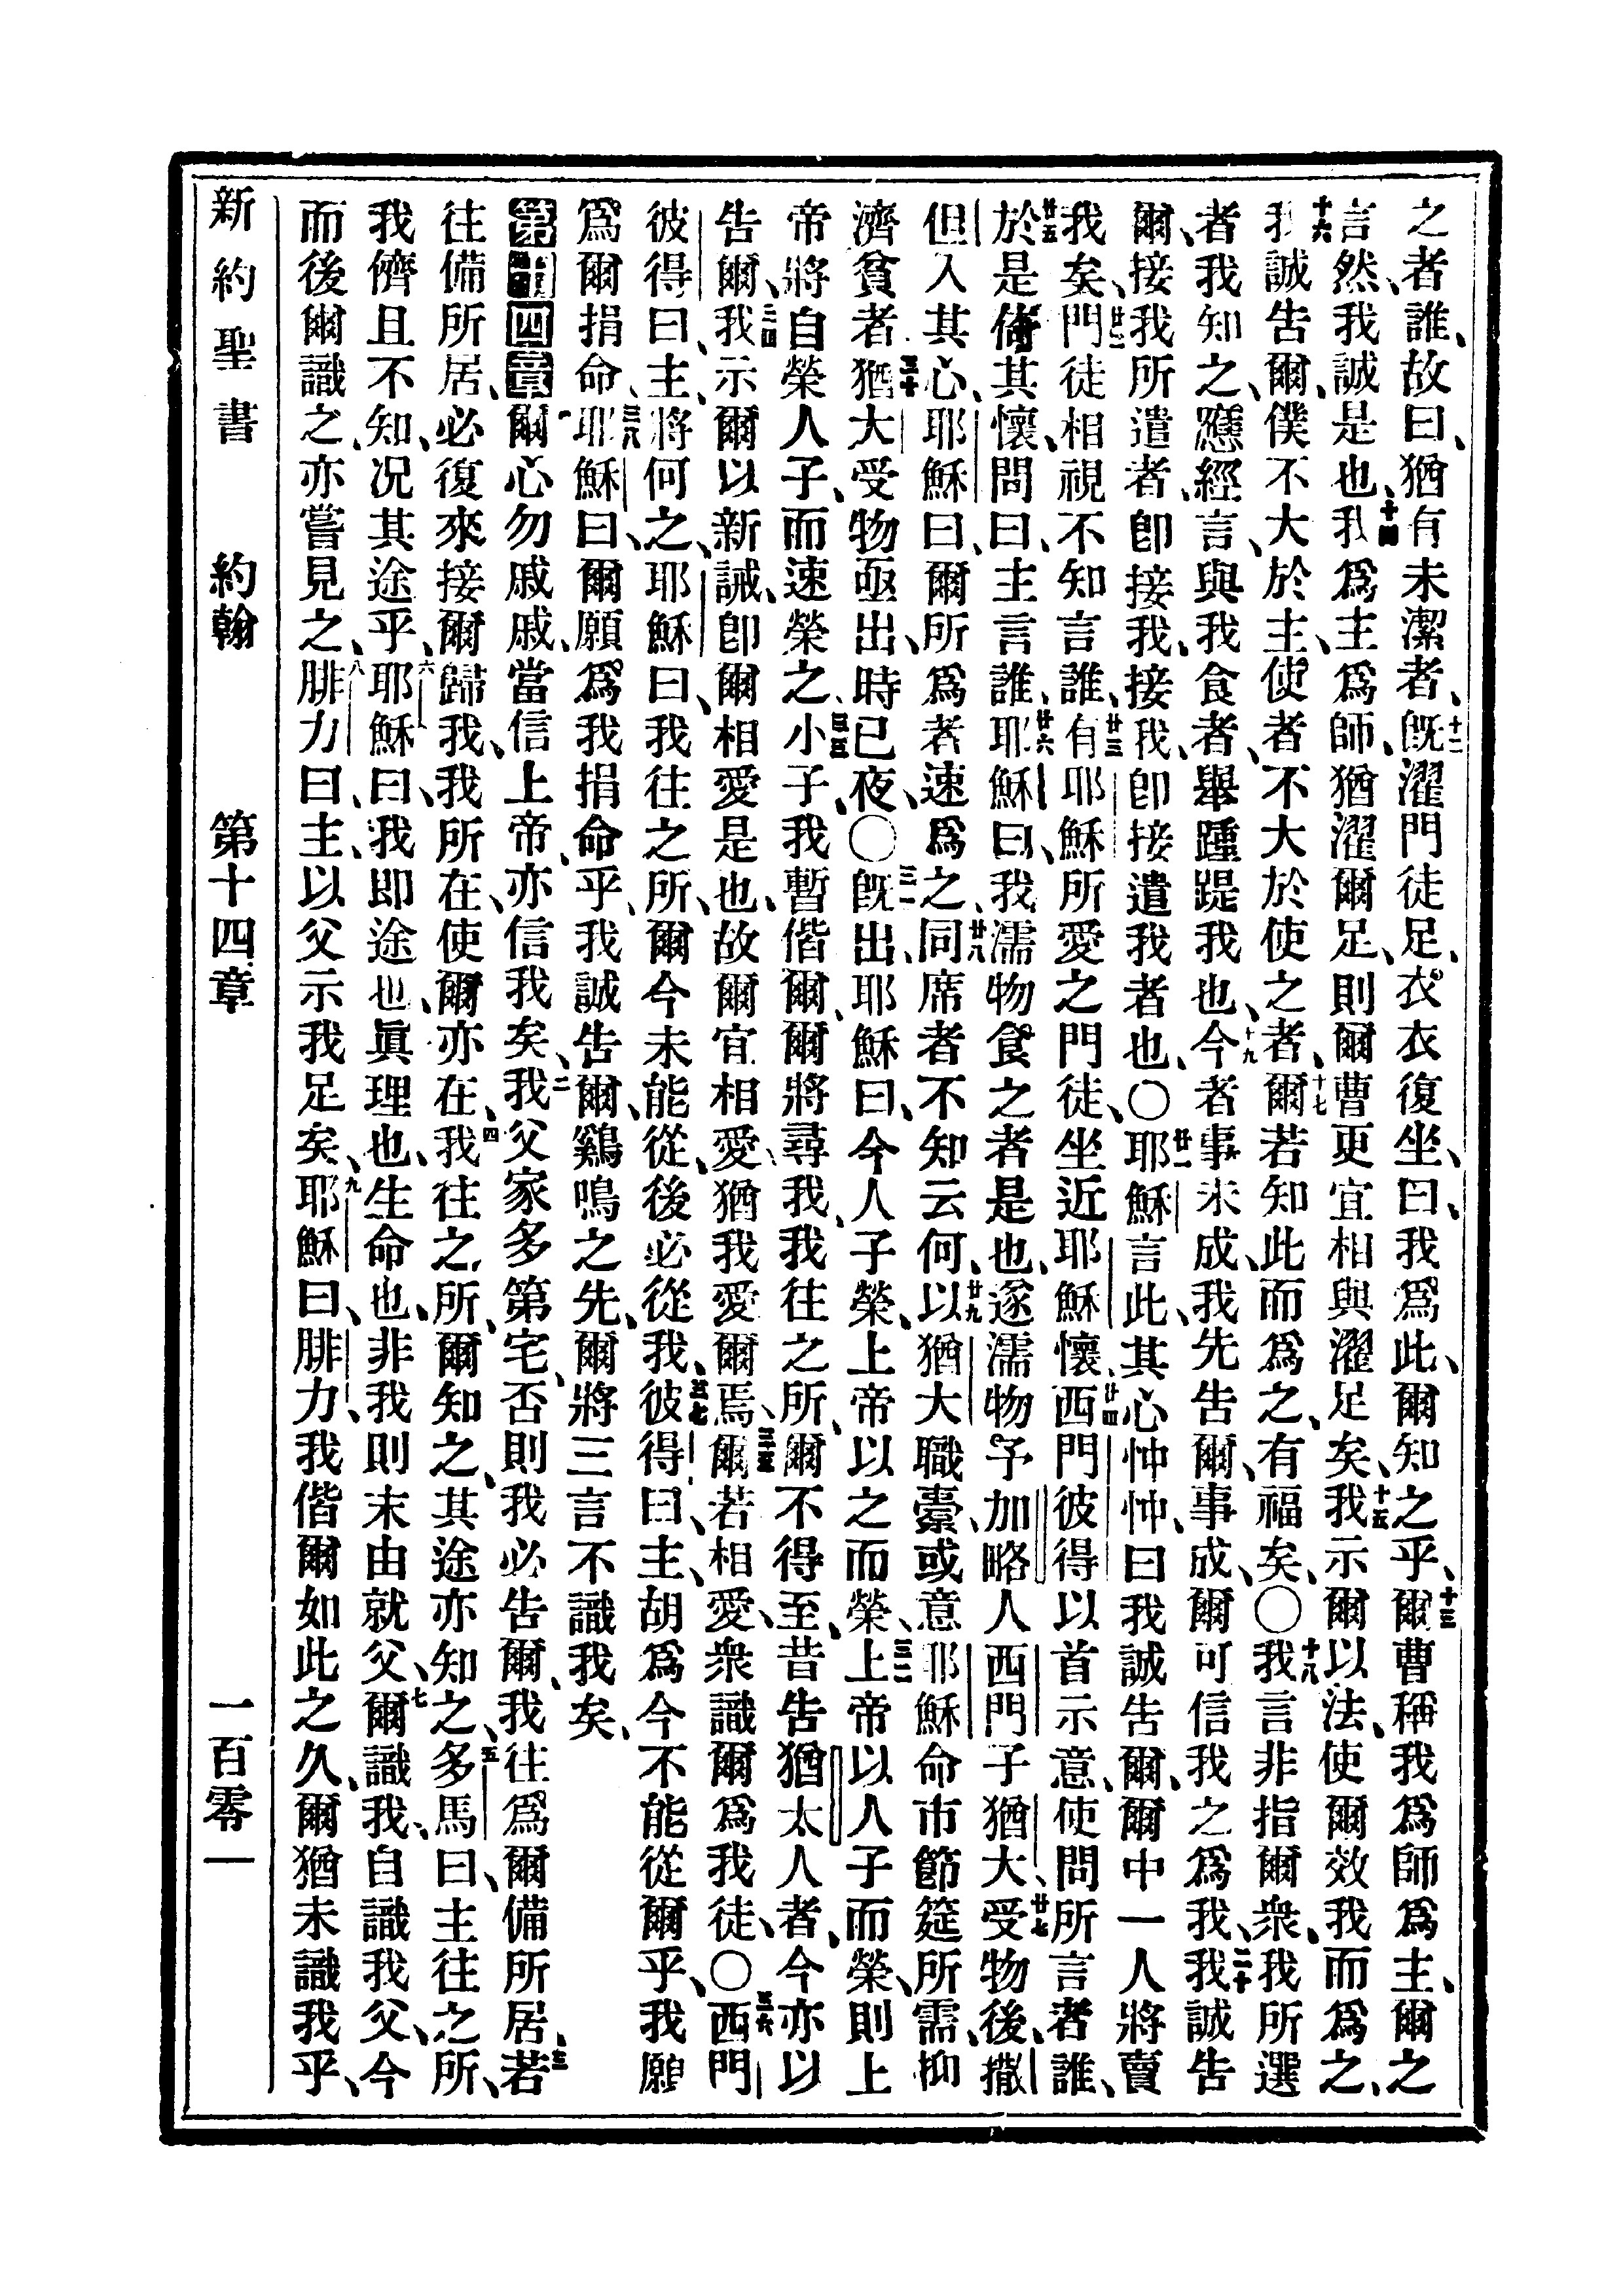 之者誰、故曰、猶有未潔者、十二旣濯門徒足、衣衣復坐、曰、我爲此、爾知之乎、十三爾曹稱我爲師爲主、爾之
言然、我誠是也、十四我爲主爲師、猶濯爾足、則爾曹更宜相與濯足矣、十五我示爾以法、使爾效我而爲之、
十六我誠告爾、僕不大於主、使者不大於使之者、十七爾若知此而爲之、有福矣、〇十八我言非指爾衆、我所選
者我知之、應經言、與我食者、舉踵踶我也、十九今者事未成、我先告爾、事成、爾可信我之爲我、二十我誠告
爾、接我所遣者、卽接我、接我、卽接遣我者也、〇廿一耶穌言此、其心忡忡、曰我誠告爾、爾中一人將賣
我矣、廿二門徒相視不知言誰、廿三有耶穌所愛之門徒、坐近耶穌懷、廿四西門彼得以首示意、使問所言者誰、
廿五於是倚其懷、問曰、主言誰、廿六耶穌曰、我濡物食之者是也、遂濡物予加略人西門子猶大、廿七受物後、撒
但入其心、耶穌曰、爾所爲者速爲之、廿八同席者不知云何、廿九以猶大職橐、或意耶穌命市節筵所需、抑
濟貧者、三十猶大受物亟出、時已夜、〇三一旣出、耶穌曰、今人子榮、上帝以之而榮、三二上帝以人子而榮、則上
帝將自榮人子、而速榮之、三三小子、我暫偕爾、爾將尋我、我往之所、爾不得至、昔告猶太人者、今亦以
告爾、三四我示爾以新誡、卽爾相愛是也、故爾宜相愛、猶我愛爾焉、三十五爾若相愛、衆識爾爲我徒、〇三六西門
彼得曰、主、將何之、耶穌曰、我往之所、爾今未能從、後必從我、三七彼得曰、主、胡爲今不能從爾乎、我願
爲爾捐命、三八耶穌曰、爾願爲我捐命乎、我誠告爾、鷄鳴之先、爾將三言不識我矣、
第十四章爾心勿戚戚、當信上帝、亦信我矣、二我父家多第宅、否則我必告爾、我往爲爾備所居、三若
往備所居、必復來接爾歸我、我所在、使爾亦在、四我往之所、爾知之、其途亦知之、五多馬曰、主往之所、
我儕且不知、況其途乎、六耶穌曰、我即途也、眞理也、生命也、非我則末由就父、七爾識我、自識我父、今
而後爾識之、亦嘗見之、八腓力曰、主、以父示我足矣、九耶穌曰、腓力、我偕爾如此之久、爾猶未識我乎、
新約聖書　約翰　第十四章　一百零一